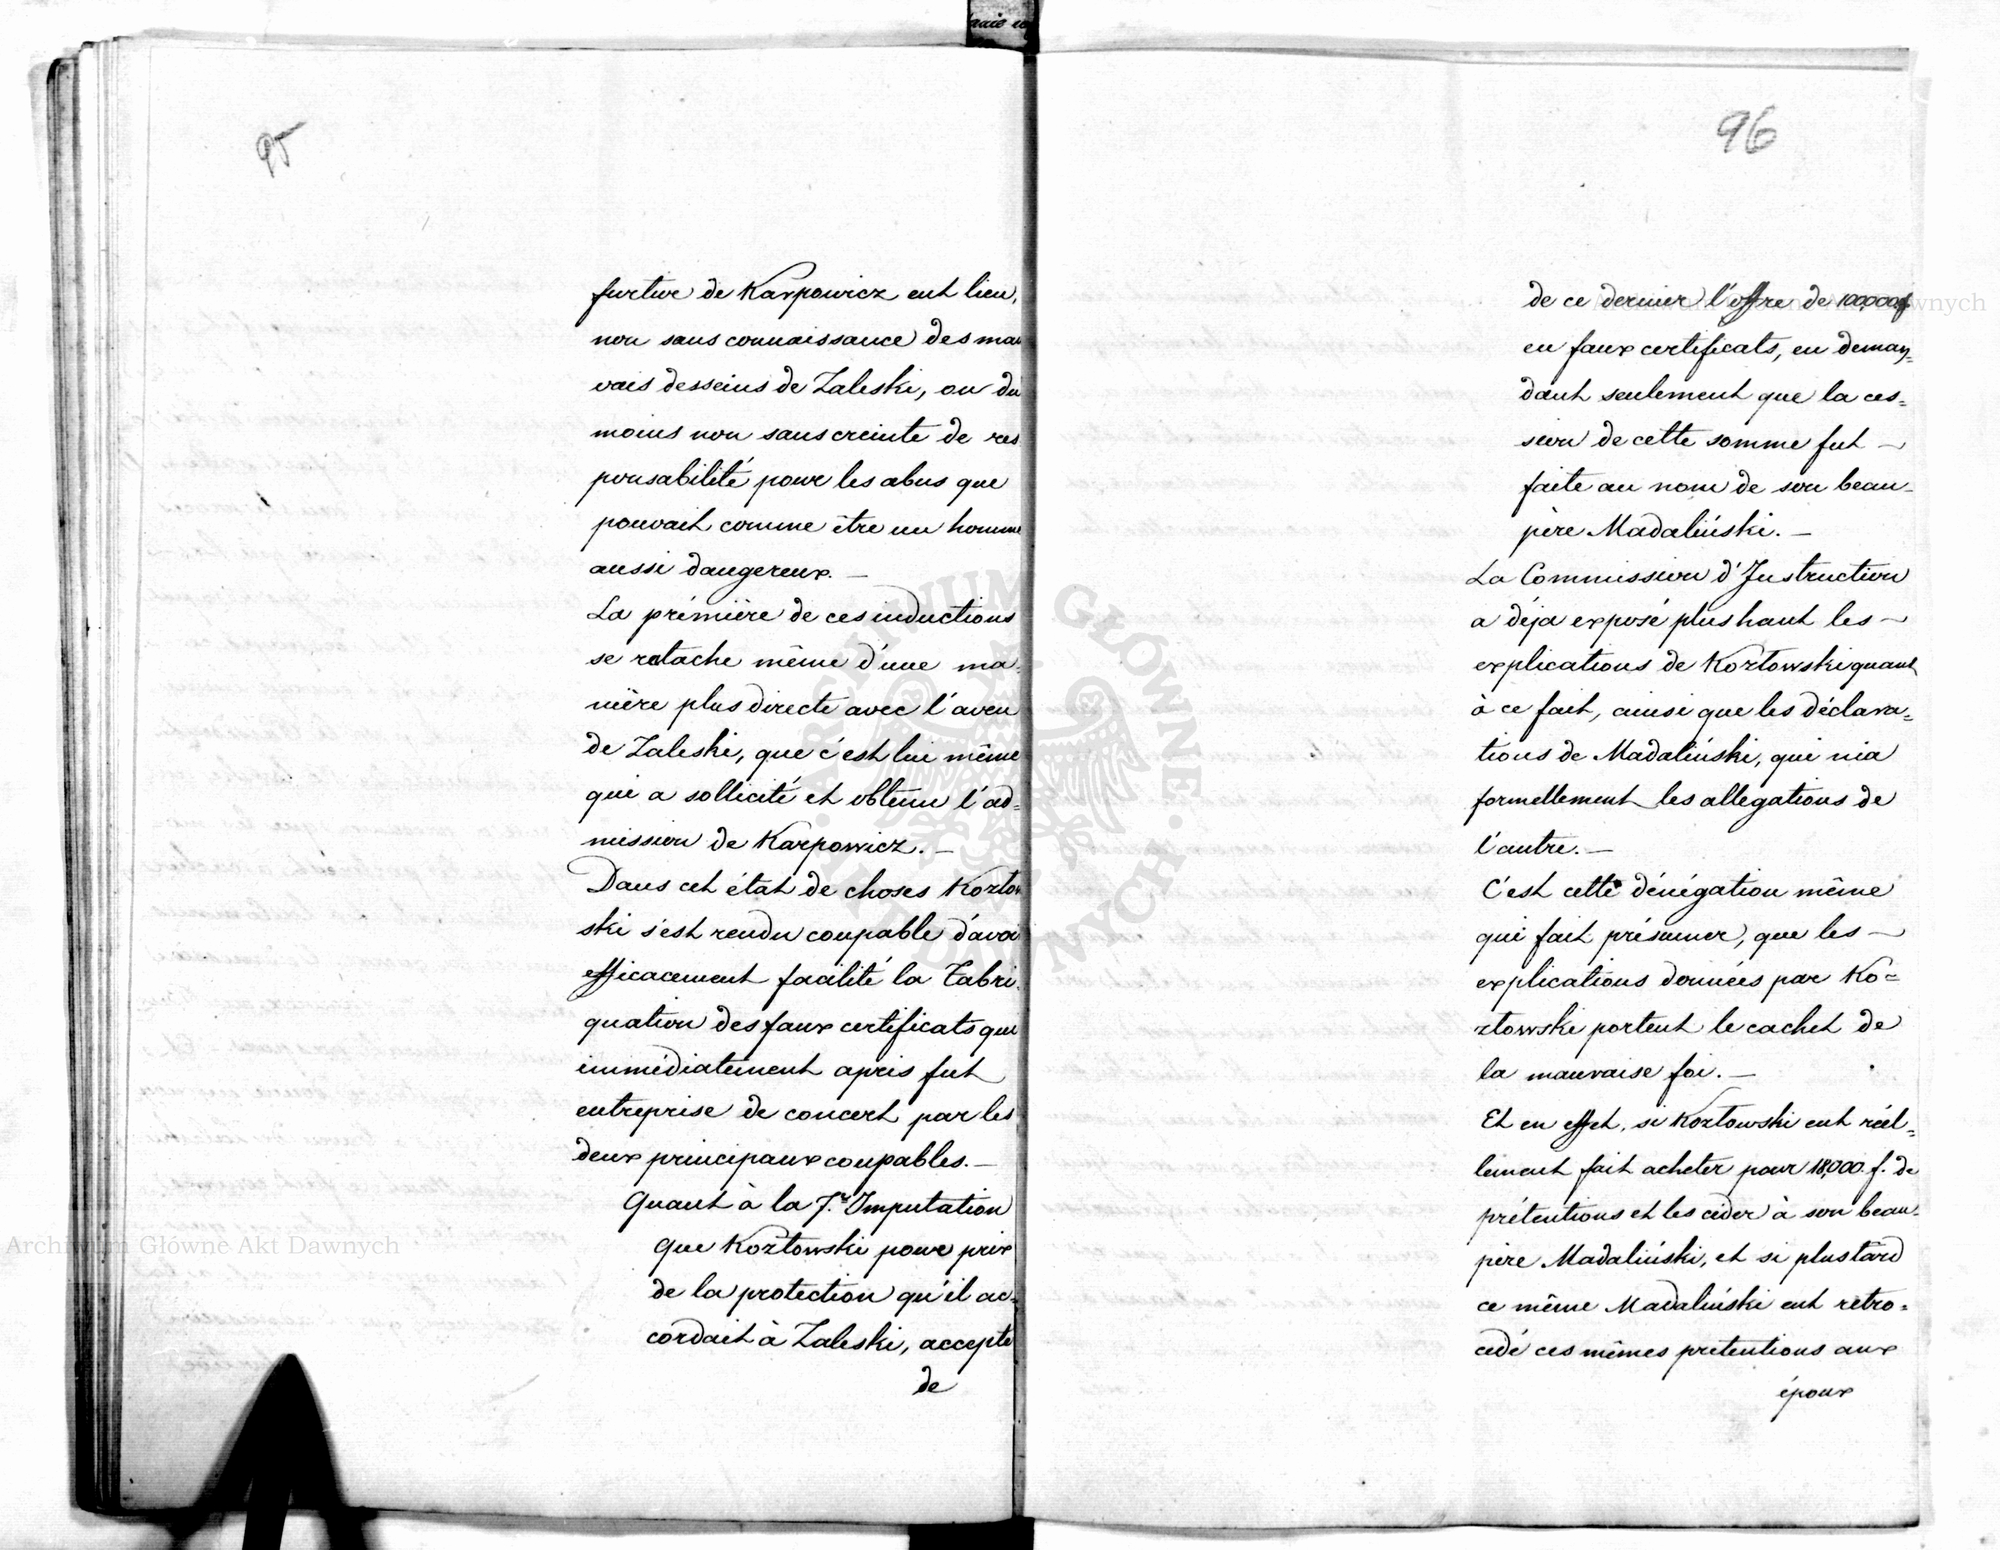 95
furtive de Karpowicz eut lieu,
non sans connaissance des mau
vais desseins de Zaleski, ou du
moins non sans creinte de res
ponsabilité pour les abus que
pouvait comme être un homme
aussi dangereux. —
La prémière de ces inductions
se ratache même d'une ma
nière plus directe avec l'aveu
de Zaleski, que c'est lui même
qui a sollicité et obtenu l'ad=
mission de Karpowicz. —
Dans cet état de choses Kozłow
ski s'est rendu coupable d'avoi
efficacement facilité la Fabri
quation des faux certificats qui
immédiatement après fut
entreprise de concert par les
deux principaux coupables. —
Quant à la 7.e Imputation
que Kozłowski pour prix
de la protection qu'il ac=
cordait à Zaleski, accepte
de
96
de ce dernier l'offre de 100,000 f
en faux certificats, en deman=
dant seulement que la ces=
sion de cette somme fut —
faite au nom de son beau-
père Madaliński. —
La Commission d'Instruction
a déja exposé plus haut les —
explications de Kozłowski quant
à ce fait, ainsi que les déclara=
tions de Madaliński, qui nia
formellement les allegations de
l'autre. —
C'est cette dénégation même
qui fait présumer, que les —
explications données par Ko=
złowski portent le cachet de
la mauvaise foi. —
Et en effet, si Kozłowski eut réel=
lement fait acheter pour 18,000 f. de
prétentions et les céder à son beau-
père Madaliński, et si plus tard
ce même Madaliński eut rétro=
cédé ces mêmes prétentions aux
époux
Archiwum Główne Akt Dawnych
Archiwum Główne Akt Dawnych
ARCHIWUM GŁÓWNE AKT DAWNYCH